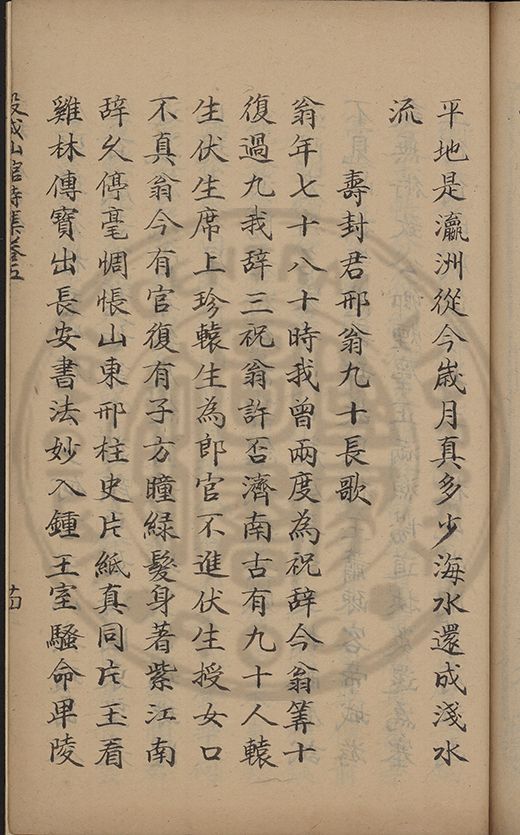 平地是瀛洲從今歲月真多少海水還成淺水
流
壽封君邢翁九十長歌
翁年七十八十時我曾兩度為祝辭今翁筭十
復過九我辭三祝翁許否濟南古有九十人轅
生伏生席上珍轅生為郎官不進伏生授女口
不真翁今有官復有子方瞳綠髮身著紫江南
辞乆停毫惆悵山東邢柱史片紙真同片玉看
雞林傳寶出長安書法妙入鍾王室騷命毕陵
穀城山館詩集卷五